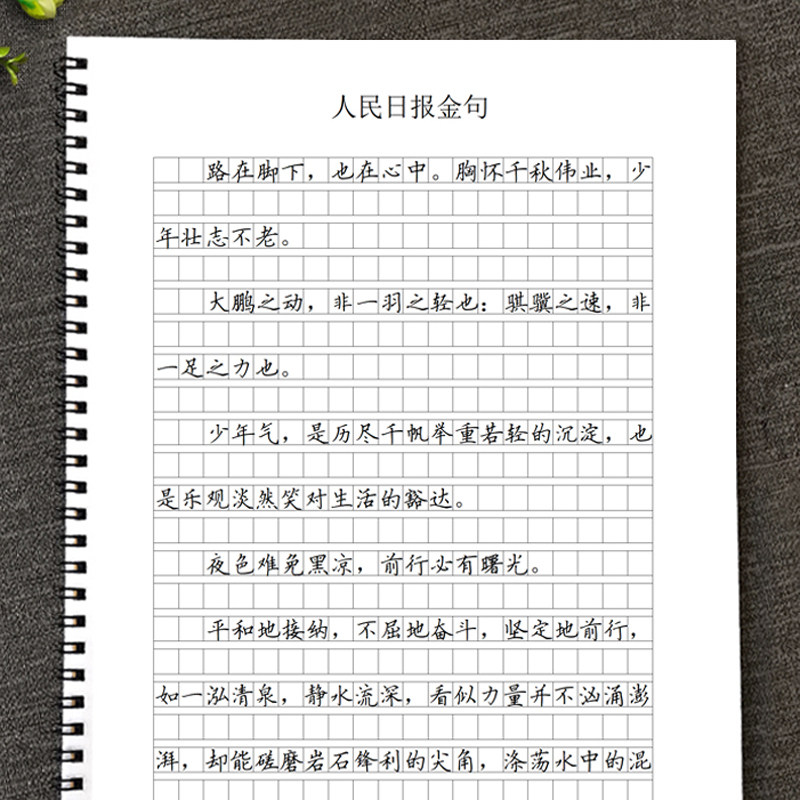 人民日报金句
路在脚下，也在心中。胸怀千秋伟业，少
年壮志不老。
大鹏之动，非一羽之轻也：骐骥之速，非
一足之力也。
少年气，是历尽千帆举重若轻的沉淀，也
是乐观淡然笑对生活的豁达。
夜色难免黑凉，前行必有曙光。
平和地接纳，不屈地奋斗，坚定地前行，
如一泓清泉，静水流深，看似力量并不汹涌澎
湃，却能磋磨岩石锋利的尖角，涤荡水中的混